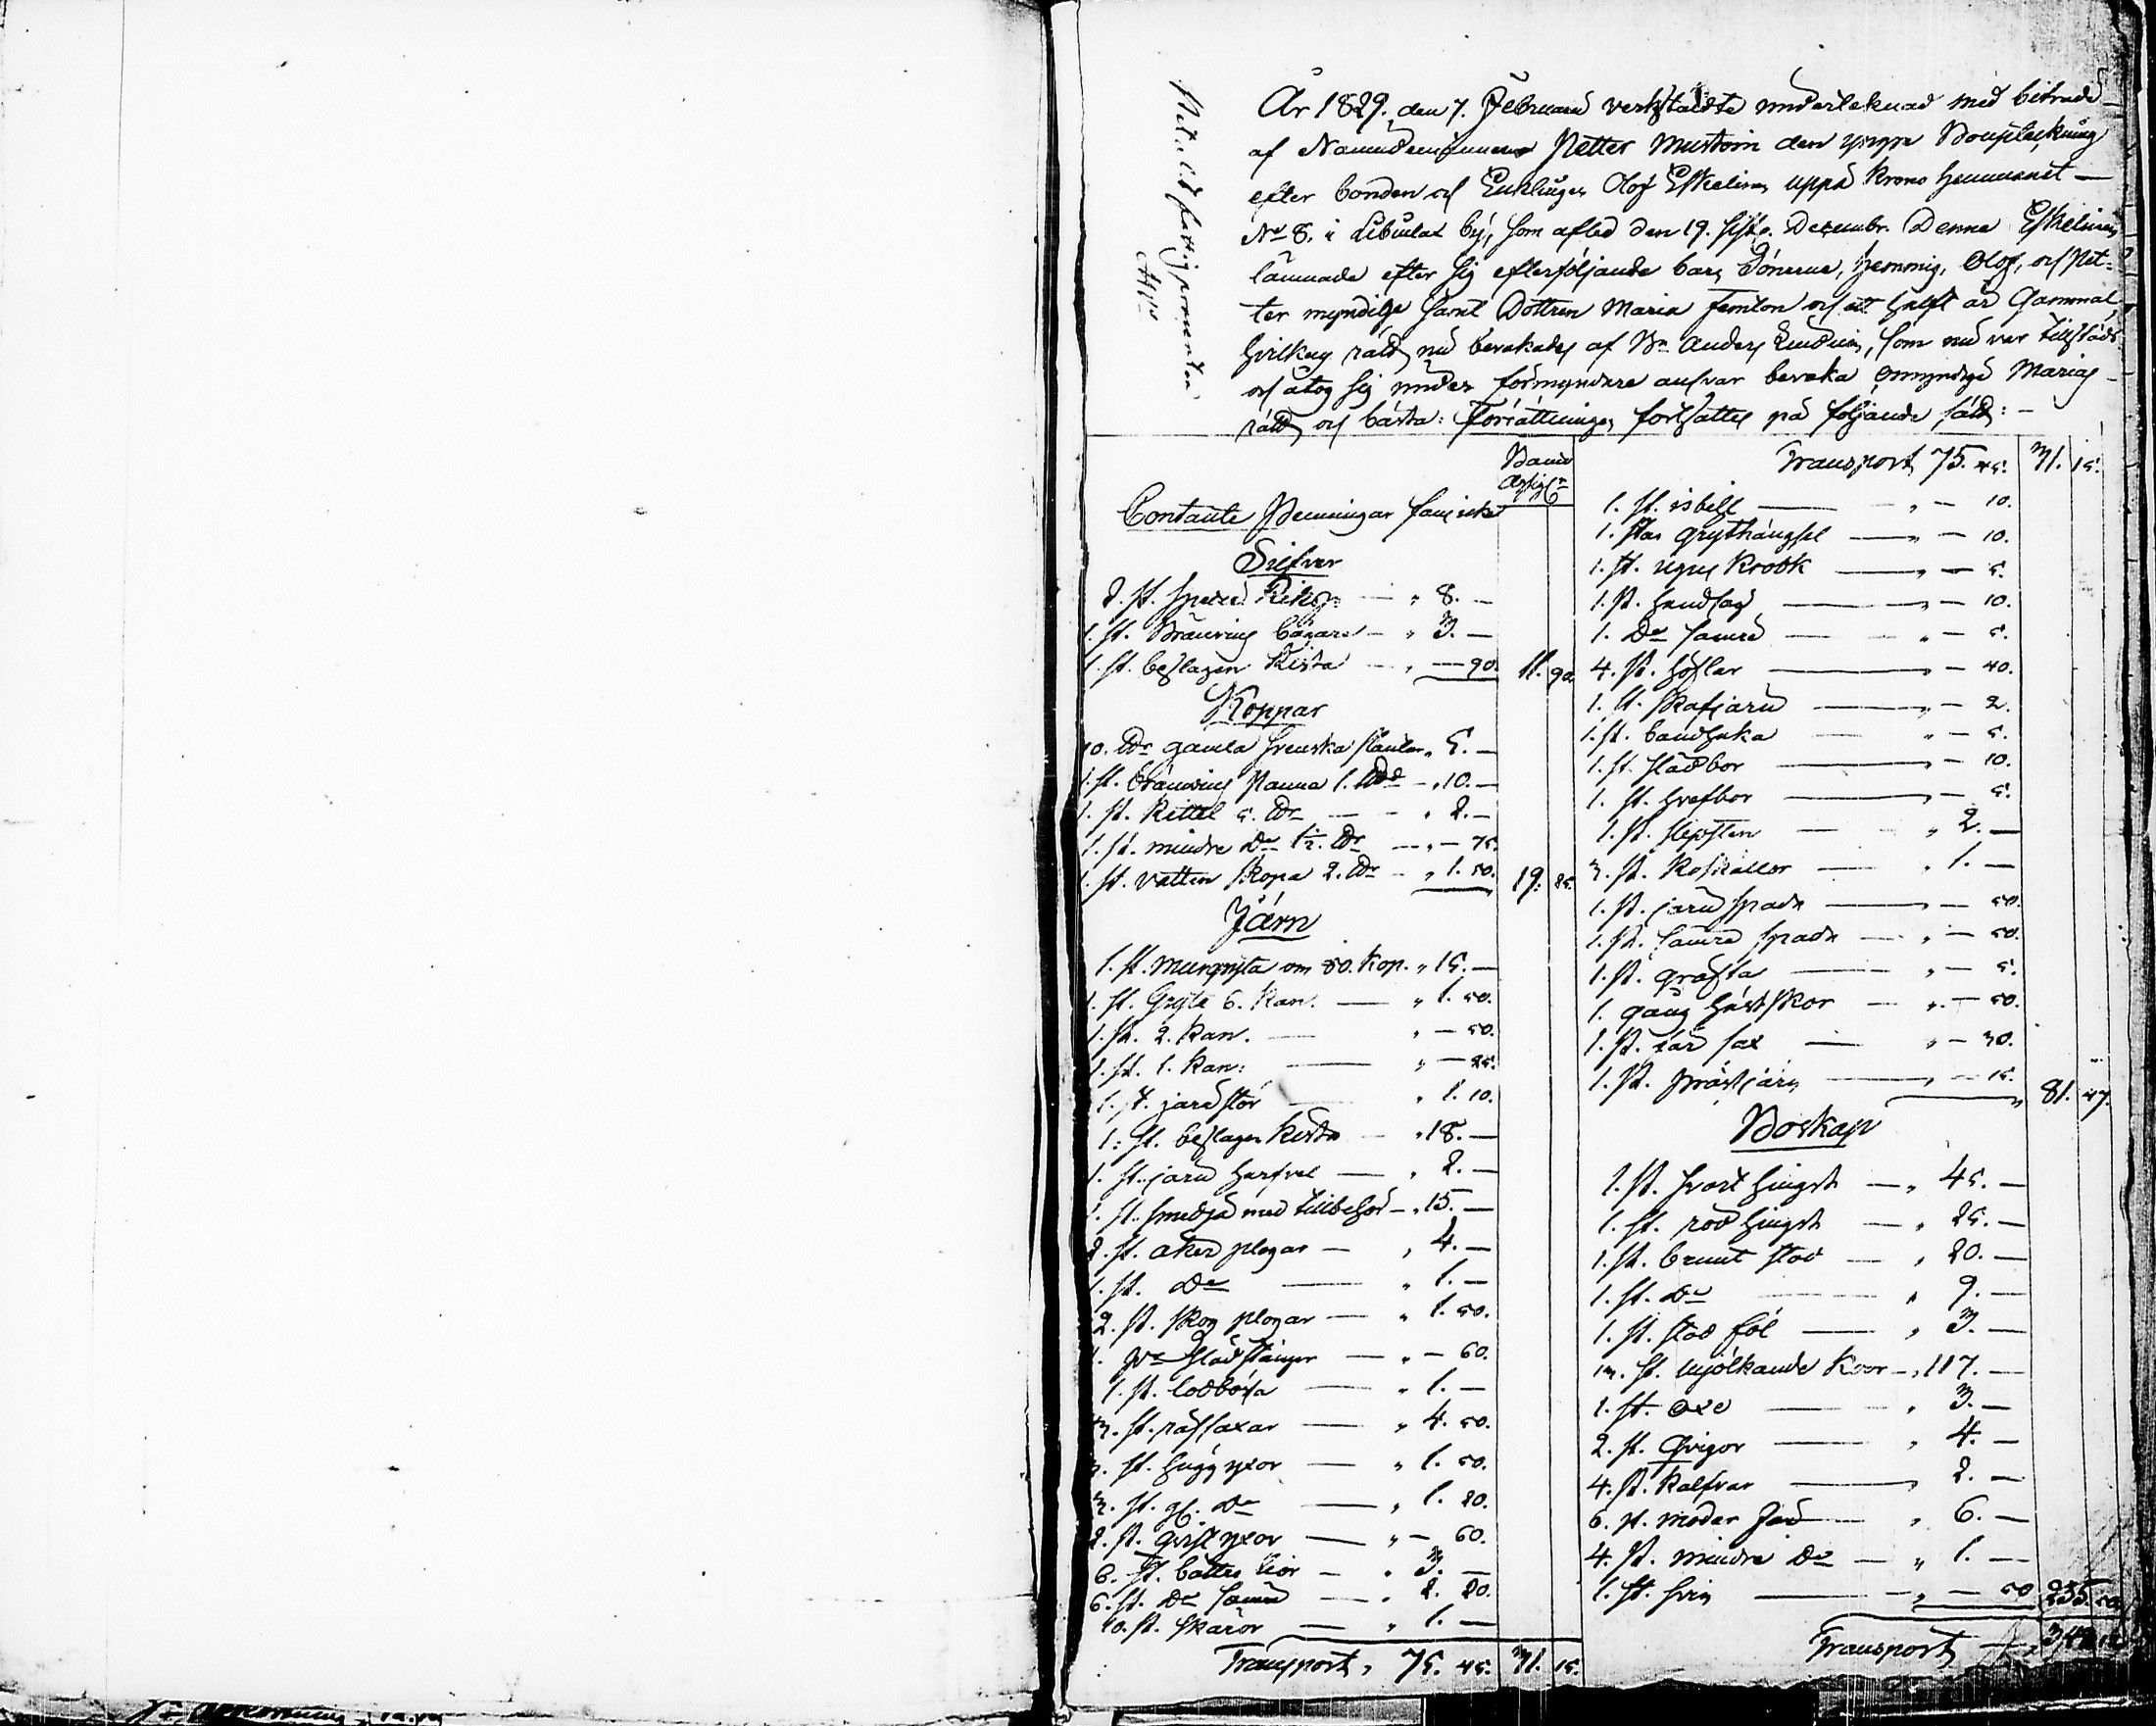 År 1829. den 7. Februarii verkstäldte underteknad med biträde
af Nämndemannen Petter Mustoin den yngre Bouptäckning
efter bonden och Enklingen Olof Eskelin uppå Krono hemmanet
No 8. i Libulax by, som afled den 19. sistl. Decembr. Denne Eskelin
lämnade efter sig efterföljande barn Sönerne, Hemmig, Olof, och Pet-
ter myndige samt Dottren Maria femton och ett halft år Gammal,
hvilkens rätt nu bevakades af Bn Anders, som nu var tillstädes
och åtog sig under förmyndare ansvar bevaka omyndige Marias
rätt och bästa: Förrättningen fortsattes på följande sätt:
Banco
Assign
Contante Penningar fans icke
Silfver
2. st. Rikop " 8. —
1. st. Bränvins bägare " 3. —
1. st. beslagen Kista " — 90. 11. 90.
Koppar
10. gamla Svenska " 5. —
1. st. bränvins Panna 1. " 10. —
1. st. Kittel 5. " 2. —
1. st. mindre Do 1½. " — 75.
1. st. vatten skopa 2. " 1. 50. 19. 25.
Järn
1. st. om 50. kop. " 15. —
1. st. Gryta 6. Kan. " 1. 50.
1. st. 2. Kan. " — 50.
1. st. 1. Kan: " — 25.
1. st. jarnstör " 1. 10.
1. st. beslagen Kista " 18. —
1. st. jarn harfvel " 2. —
1. st. smedja med tillbehör " 15. —
2. st. åker plogar " 4. —
1. st. Do " 1. —
2. st. skog plogar " 1. 50.
1. stänger " — 60.
1. st. lodbössa " 1. —
3. st. räfsaxar " 4. 50.
3. st. hugg yxor " 1. 50.
3. st. gl. Do " 1. 20.
2. st. yxor " — 60.
6. st. bättre liar " 3. —
6. st. Do sämre " 2. 20.
10. st. Skäror " 1. —
Transport " 75. 45. 31. 15.
Transport 75. 45. 31. 15.
1. st. isbill " — 10.
1. grythängsel " — 10.
1. st. ugns Krook " — 5.
1. st. handsåg " — 10.
1. Do sämre " — 5.
4. st. höflar " — 40.
1. st. skafjarn " — 2.
1. st. bandhaka " — 5.
1. st. " — 10.
1. st. " — 5.
1. st. slipsten " 2. —
3. st. Koskällor " 1. —
1. st. jarn spada " — 50.
1. st. sämre spada " — 50.
1. st. gräfta " — 5.
1. gång hästskor " — 50.
1. st. får sax " — 30.
1. st. " — 15. 81. 47.
Boskap
1. st. svart hingst " 45. —
1. st. röd hingst " 25. —
1. st. brunt sto " 20. —
1. st. Do " 9. —
1. st. sto föl " 3. —
13. st. mjölkande Koor " 117. —
1. st. oxe " 3. —
2. st. Qvigor " 4. —
4. st. Kalfvar " 2. —
6. st. moder får " 6. —
4. st. mindre Do " 1. —
1. st. svin " — 50 235. 50
Transport